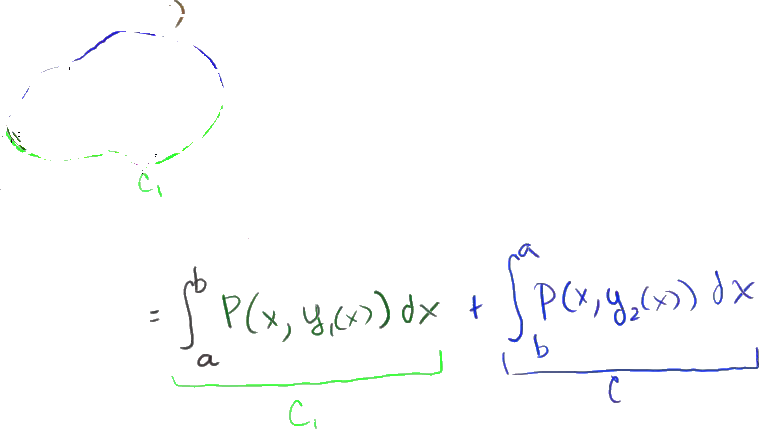 C₁
= ∫_a^b P(x, y₁(x)) dx + ∫_b^a P(x, y₂(x)) dx
C₁ C